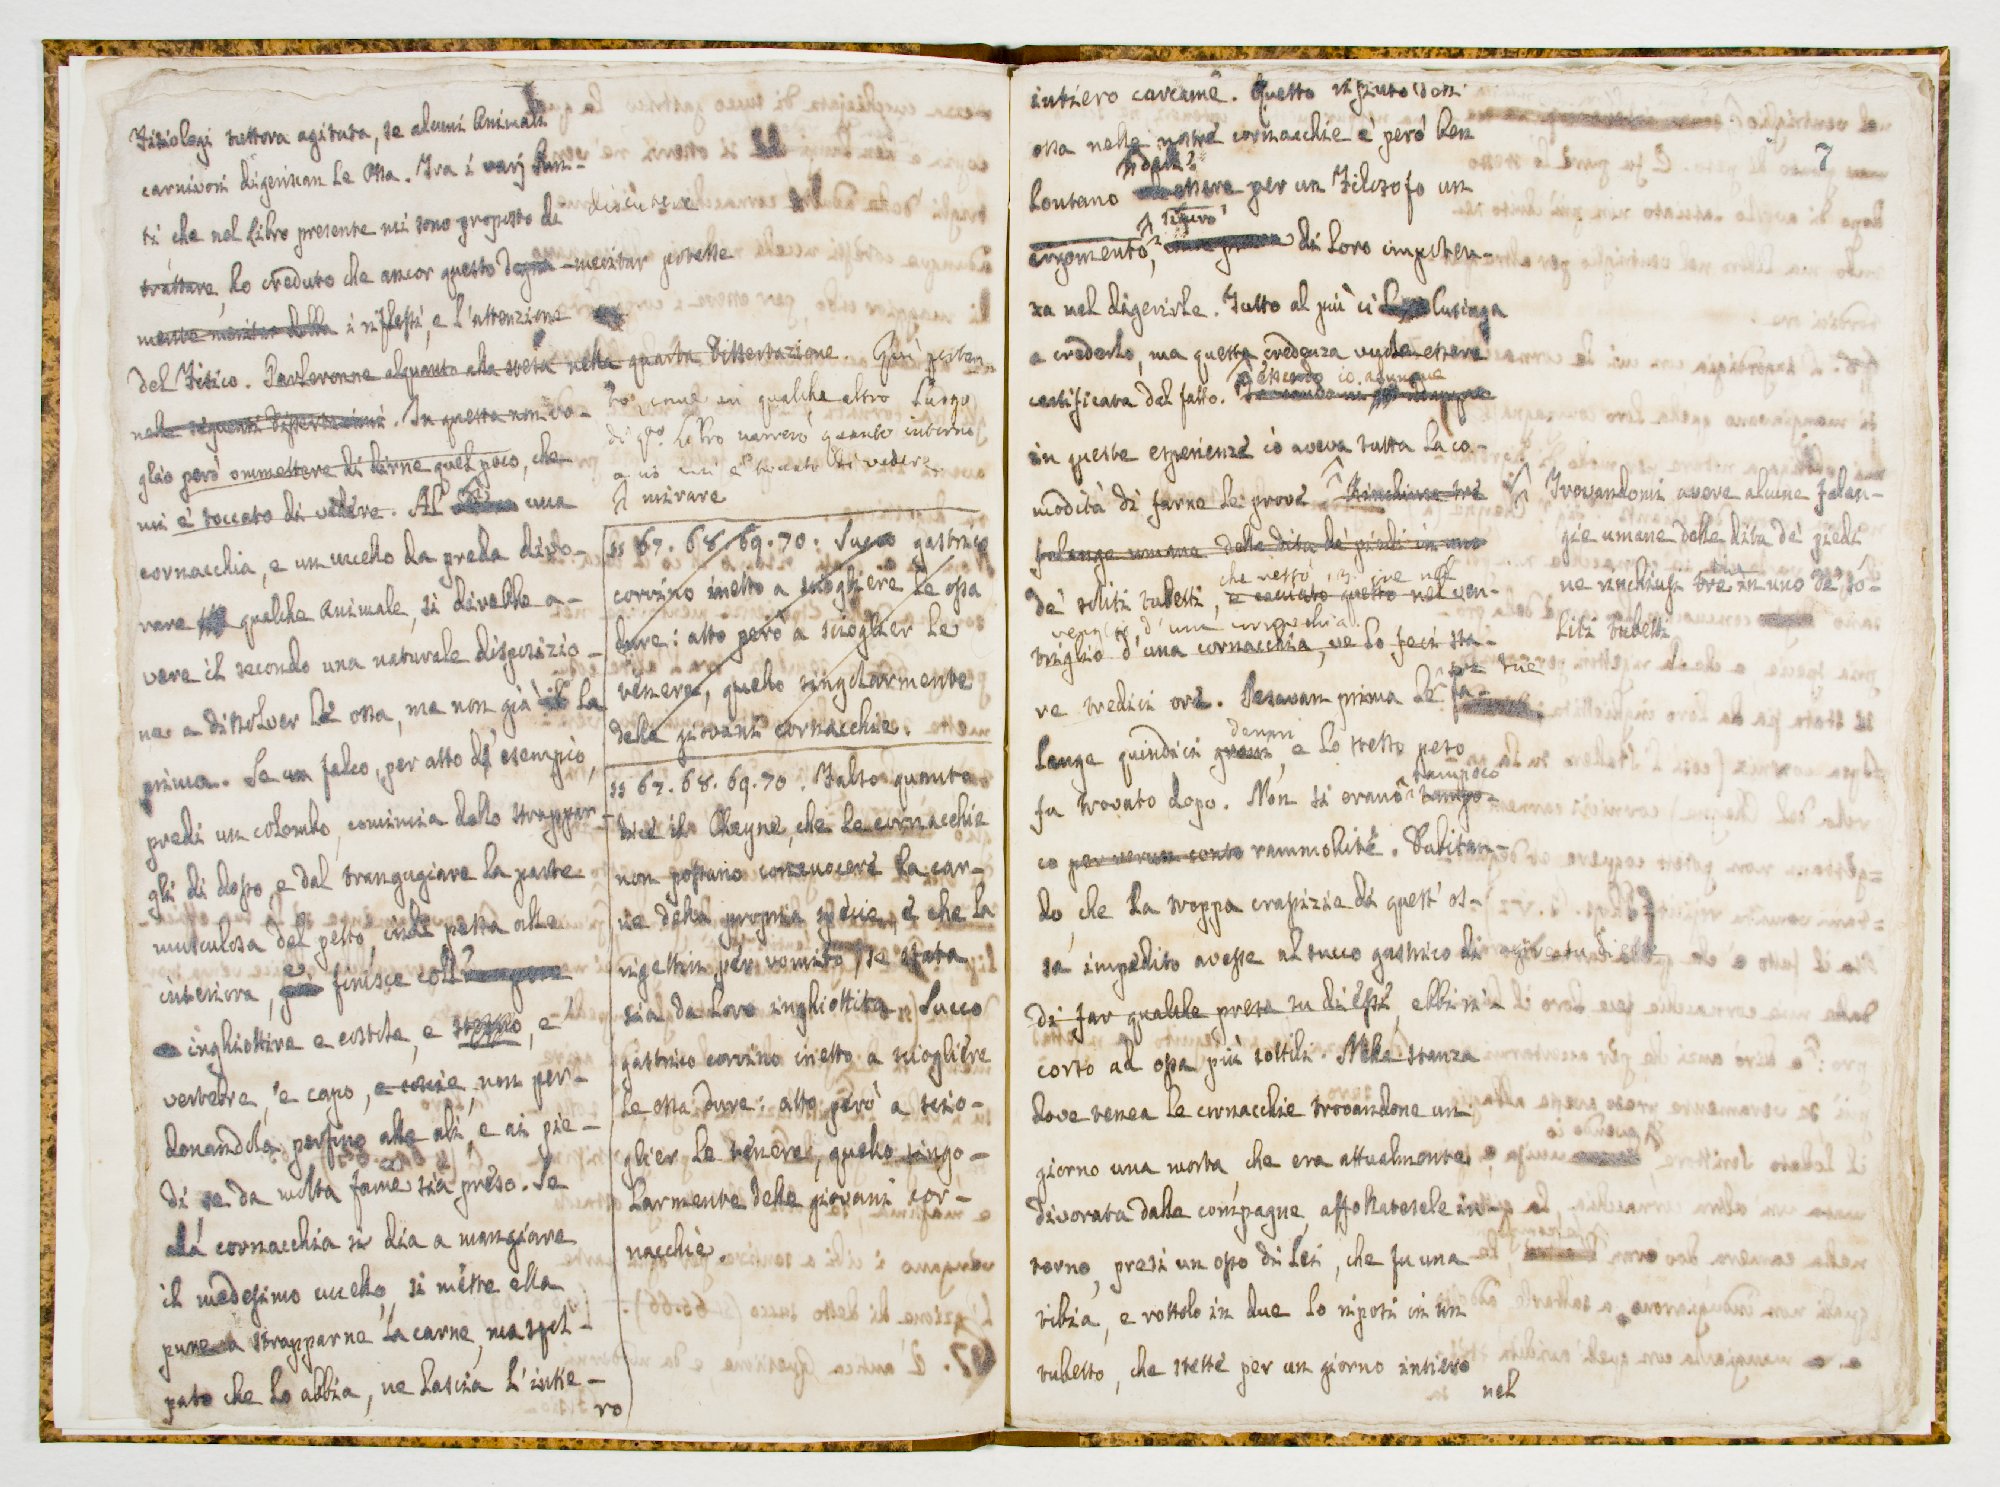 Fisiologi tuttora agitata, se alcuni Animali
carnivori digeriscan le Ossa. Tra i varj Pun-
ti che nel Libro presente mi sono proposto di
trattare, ho creduto che ancor questo degna-
mente meritar della i riflessi, e l'attenzione
del Fisico. Parleronne alquanto alla svelta nella quarta Dissertazione.
nelle seguenti Dissertazioni. In questa non vo-
glio però ommettere di dirne quel poco, che
mi è toccato di vedere. Al una
cornacchia, e un uccello da preda divo-
rare qualche Animale, si direbbe a-
vere il secondo una naturale disposizio-
ne a dissolver le ossa, ma non già la
prima. Se un falco, per atto di esempio,
predi un colombo, comincia dallo strappar-
gli di dosso e dal trangugiare la parte
musculosa del petto, indi passa alle
interiora, e finisce coll'
inghiottire e costole, e sterno, e
vertebre, e capo, e coscie, non per-
donandola perfino alle ali, e ai pie-
di se da molta fame sia preso. Se
alla cornacchia si dia a mangiare
il medesimo uccello, si mette ella
pure a strapparne la carne, ma spol-
pato che lo abbia, ne lascia l'intie-
ro
discutere
meritar potesse
Qui pertan
to, come in qualche altro Luogo
di qto. Libro narrerò quanto intorno
a ciò mi è toccato di vedere
mirare
§§ 67. 68. 69. 70. Succo gastrico
corvino inetto a sciogliere le ossa
dure: atto però a scioglier le
tenere, quello singolarmente
delle giovani cornacchie.
§§ 67. 68. 69. 70. Falso quanto
dice il Cheyne, che le cornacchie
non possano concuocere la car-
ne della propria specie, e che la
rigettin per vomito, se stata
sia da loro inghiottita. Succo
gastrico corvino inetto a sciogliere
le ossa dure: atto però a scio-
glier le tenere, quello singo-
larmente delle giovani cor-
nacchie.
7
intiero carcame. Questo rifiuto
ossa nelle nostre cornacchie è però ben
lontano dall'
essere per un Filosofo un
sicuro
argomento, di loro impoten-
za nel digerirle. Tutto al più ci lusinga
a crederlo, ma questa credenza vuole essere
Essendo io adunque
certificata dal fatto.
in queste esperienze io aveva tutta la co-
modità di farne le prove. Rinchiusi tre
falange umane delle dita de' piedi in uno
che restò 13. ore nel
de' soliti tubetti, e cacciato questo nel ven-
ventre d'una cornacchia
triglio d'una cornacchia, ve lo feci sta-
tre
re tredici ore. Pesavan prima le fa-
denari
lange quindici grani, e lo stesso peso
tampoco
fu trovato dopo. Non si erano tampo-
co per verun conto rammollite. Dubitan-
do, che la troppa crassizie di quest' os-
sa impedito avesse al succo gastrico di agire su di esse
di far qualche presa su di essi, ebbi ri-
corso ad ossa più sottili. Nella stanza
dove tenea le cornacchie trovandone un
giorno una morta, che era attualmente
divorata dalle compagne affollatesele in-
torno, presi un osso di lei, che fu una
tibia, e rottolo in due lo riposi in un
tubetto, che stette per un giorno intiero
nel
Trovandomi avere alcune falan-
gie umane delle dita de' piedi
ne rinchiusi tre in uno de' so-
liti tubetti